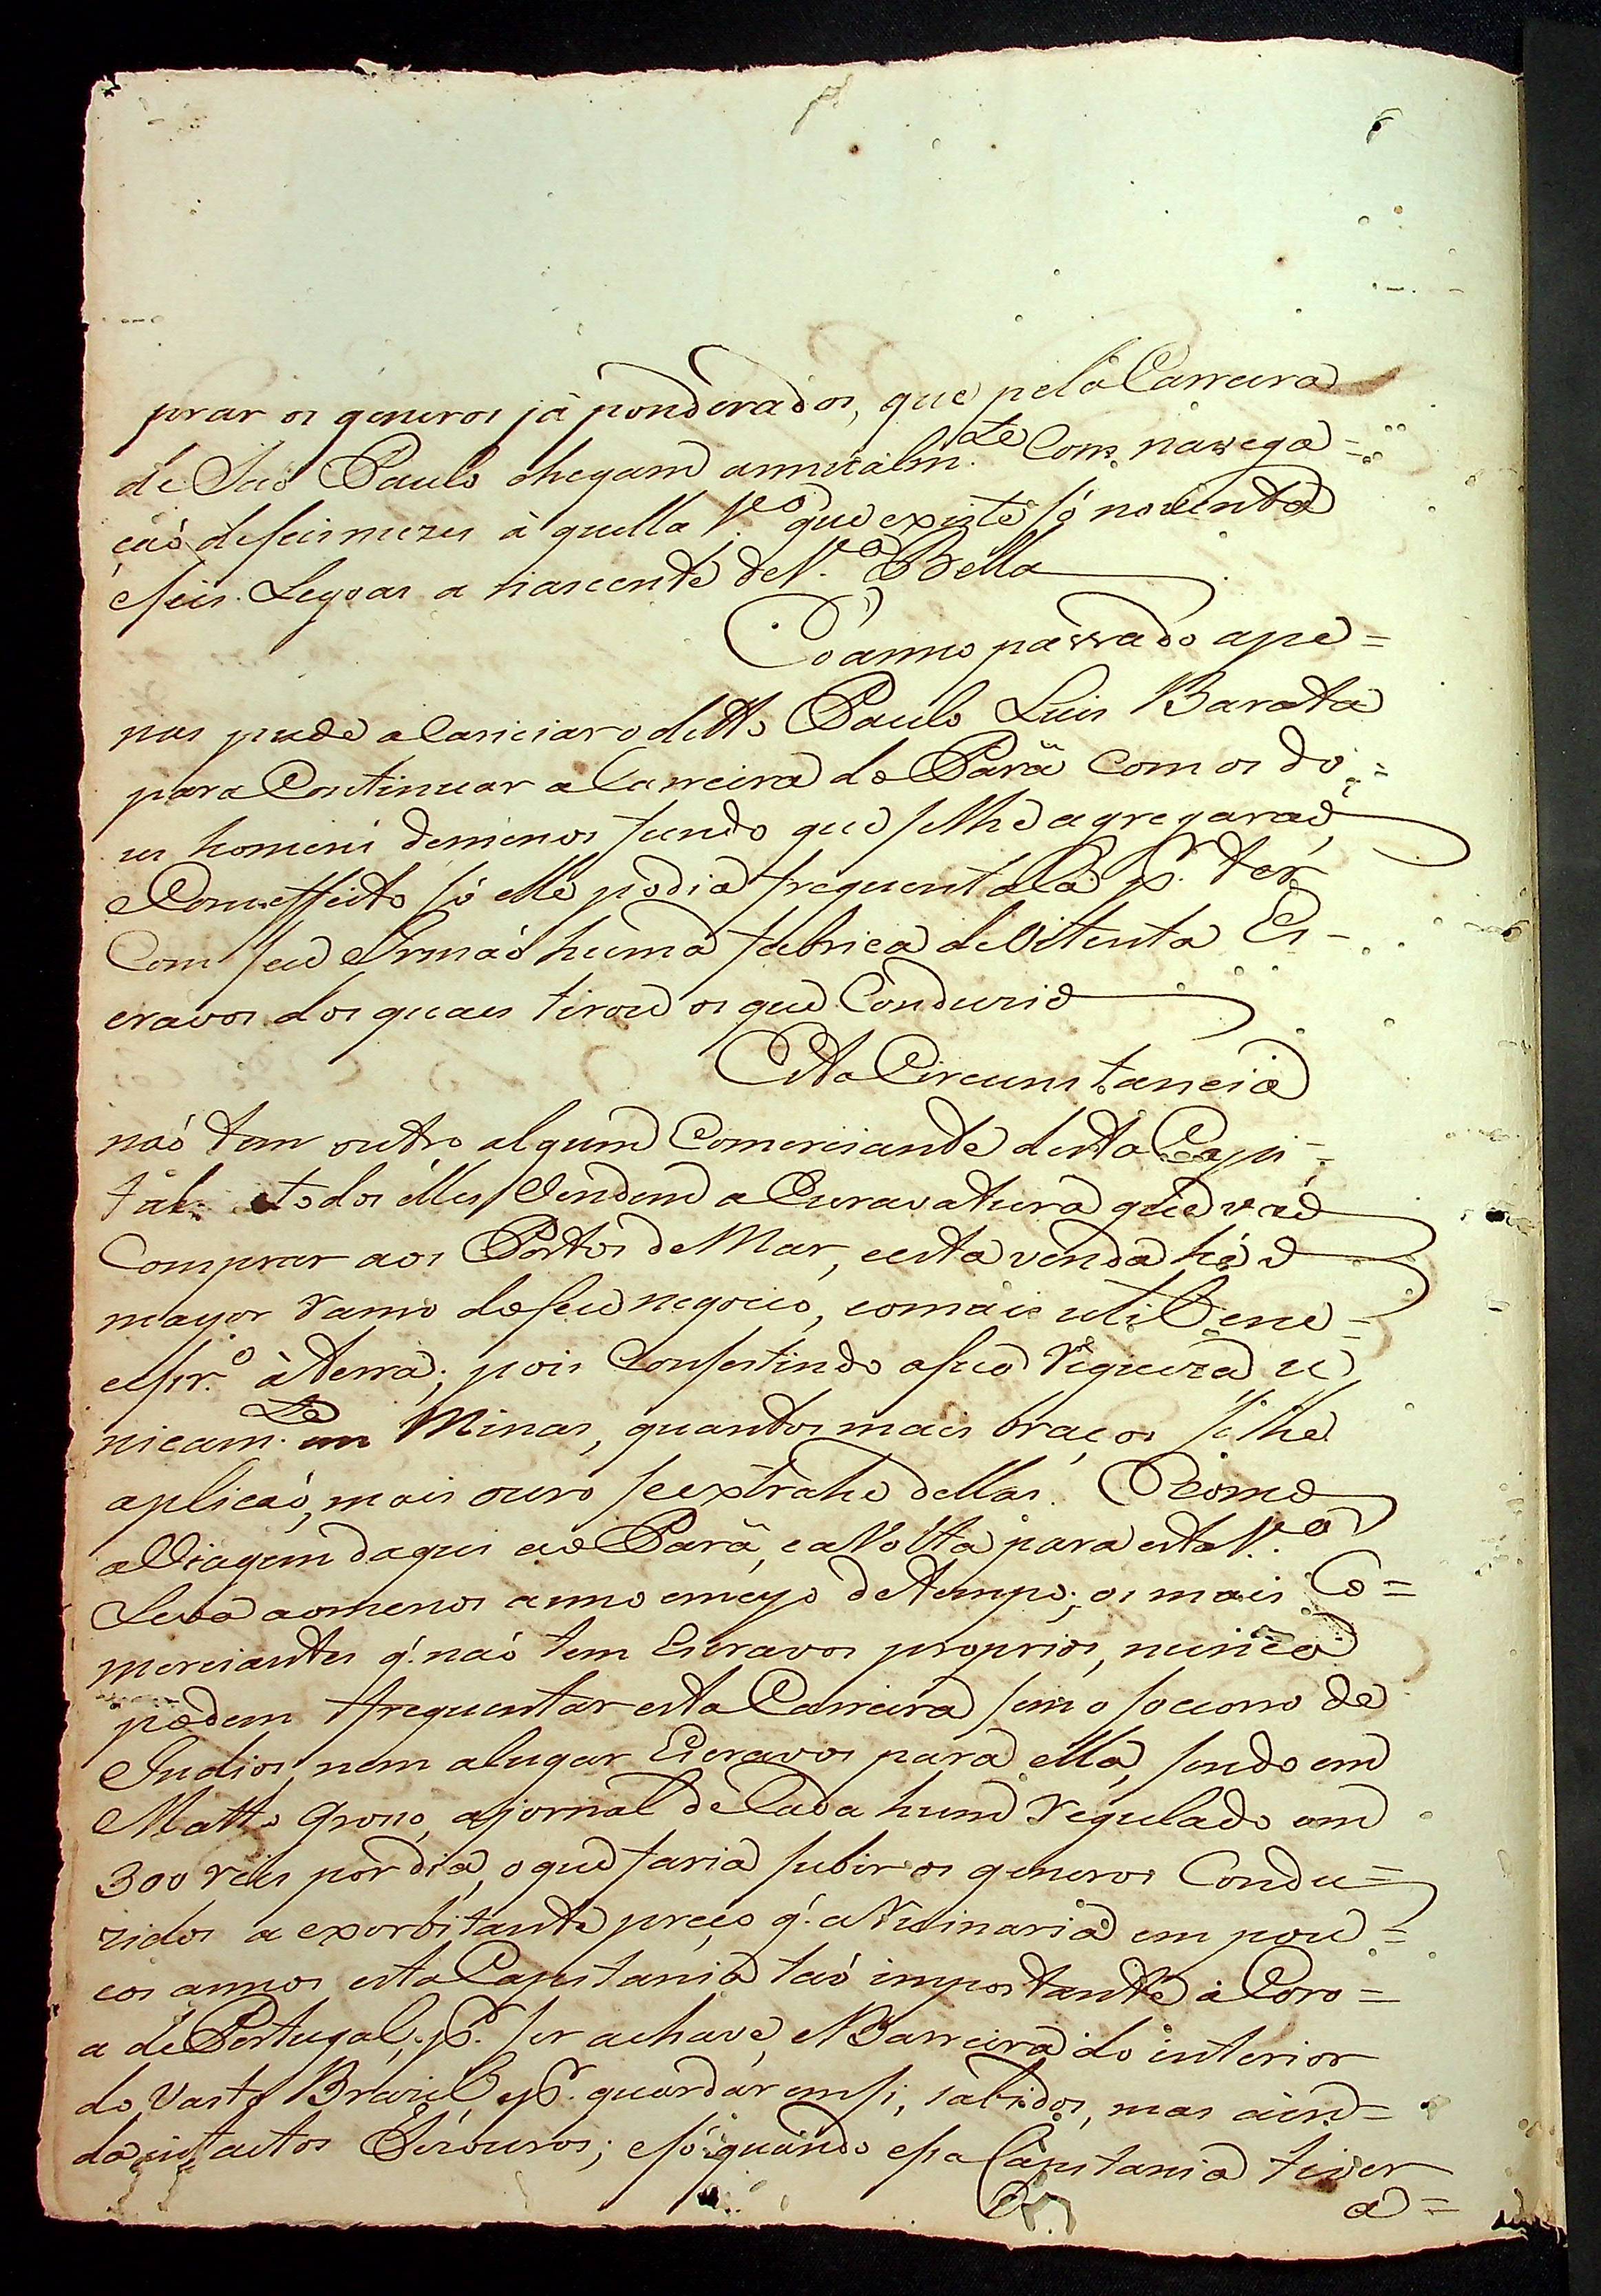 prar os generos já ponderados, que pela Carreira
de São Paulo chegam annualm.te Com navega=
çaõ de seis mezes à quella V.a que existe só noventa
e seis Legoas a nascente de V.a Bella
O anno passado ape=
nas pude alariciar o ditto Paulo Luis Barata
para Continuar a Carreira do Pará Com os do=
us homens de menos fundo que se lhe agregaraõ,
e Com effeito só elle podia frequentala p.r ter
Com seu Irmaõ huma fabrica de Oitenta Es-
cravos dos quaes tirou os que Conduzio
Esta Circunstancia
naõ tem outro algum Comerciante desta Capi-
tal: e todos élles Vendem a Escravatura que vaõ
Comprar aos Portos de Mar, e esta venda hé o
mayor ramo do seu negocio, e o mais util e ne=
cessr.o à terra; pois Consestindo a sua riqueza u
nicam.te em Minas, quantos mais braços se lhe
aplicaõ, mais ouro se extrahe dellas. E como
a Viagem daqui ao Pará, e a Volta para esta V.a
Leva ao menos anno e meyo de tempo; os mais Co=
merciantes q. naõ tem Escravos proprios, nunca
podem frequentar esta Carreira sem o socorro de
Indios, nem alugar Escravos para ella, sendo em
Matto Grosso, a jornal de Cada hum regulado em
300 reis por dia, o que faria subir os generos Condu=
zidos a exorbitante preço q. a Ruinaria em pou=
cos annos esta Capitania taõ importante à Coro=
a de Portugal, p.r ser a chave, e Barreira do interior
do Vasto Brazil, e p.r guardar em si, sabidos, mas ain=
da intactos Tezouros; e só quando essa Capitania tiver
a=